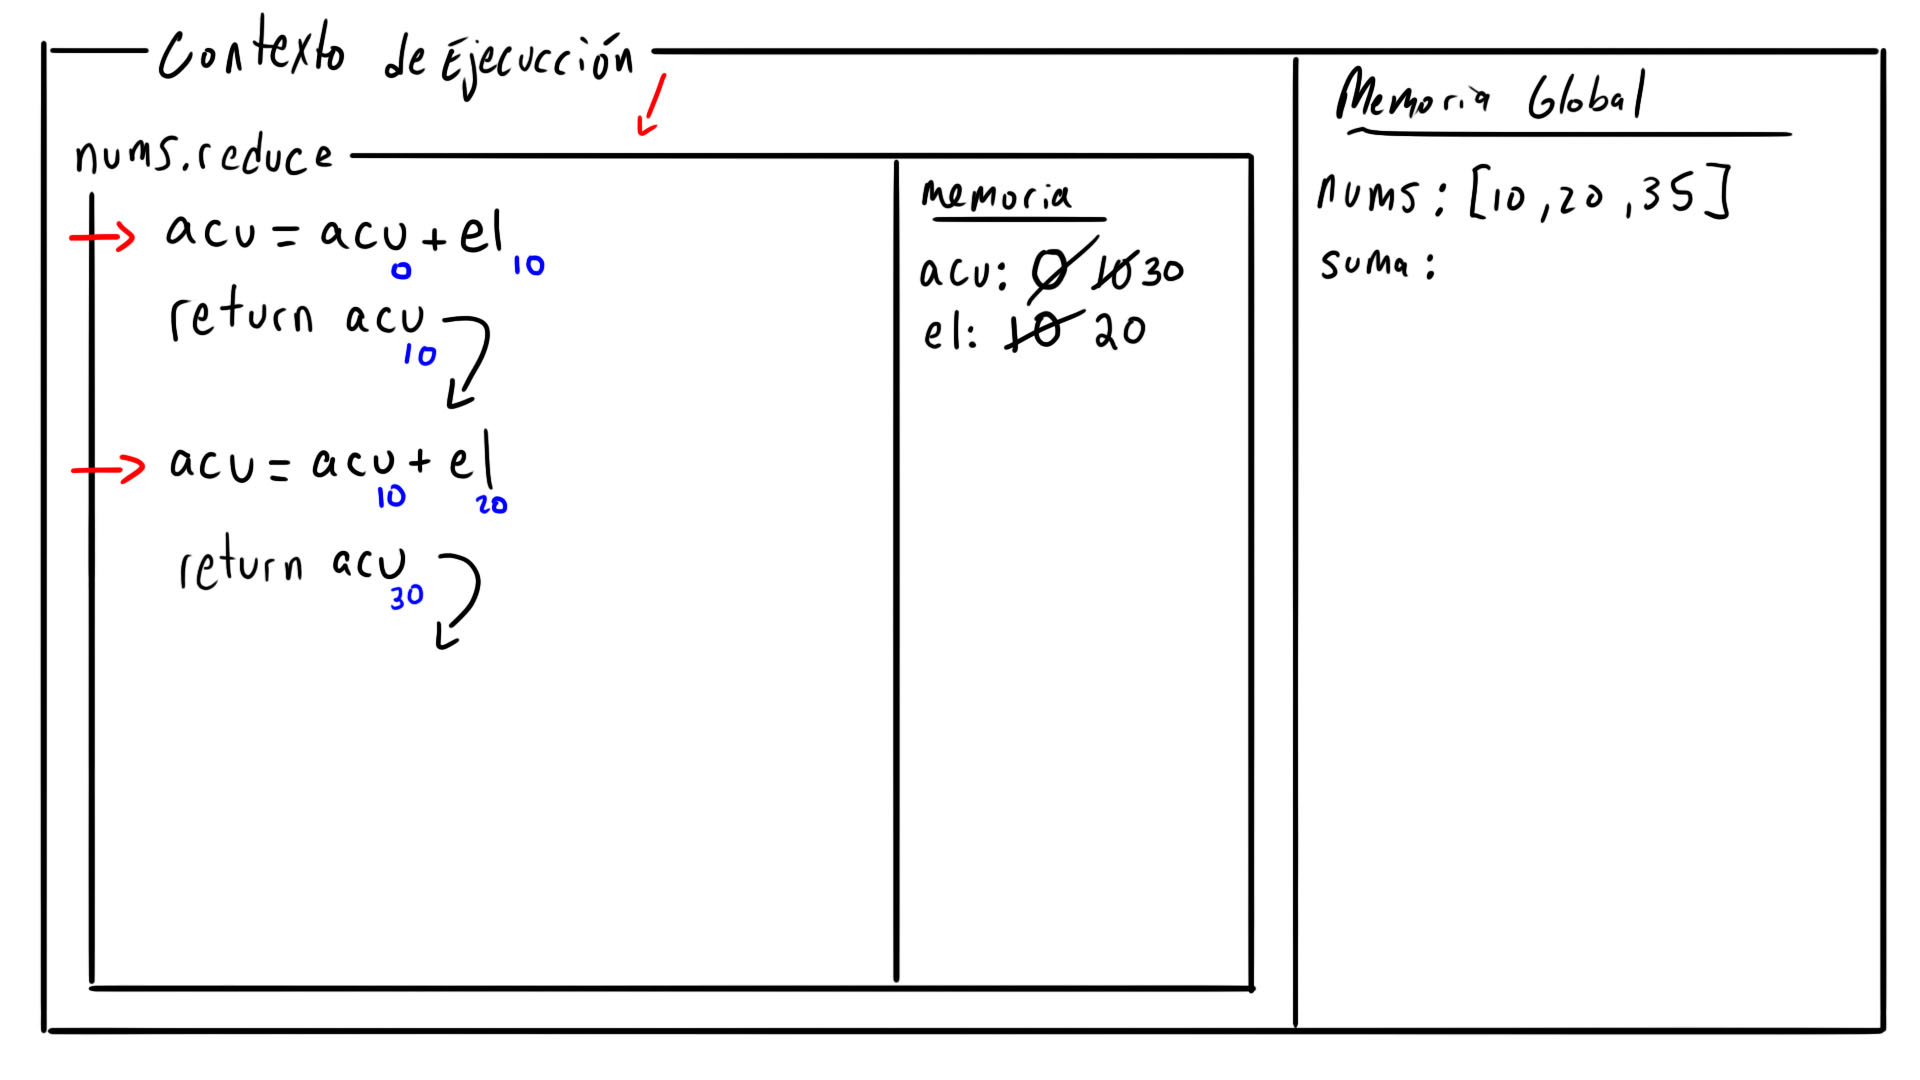 Contexto de Ejecucción
nums.reduce
acu = acu + el
0 10
return acu
10
acu = acu + el
10 20
return acu
30
memoria
acu: 0 10 30
el: 10 20
Memoria Global
nums: [10, 20, 35]
suma: